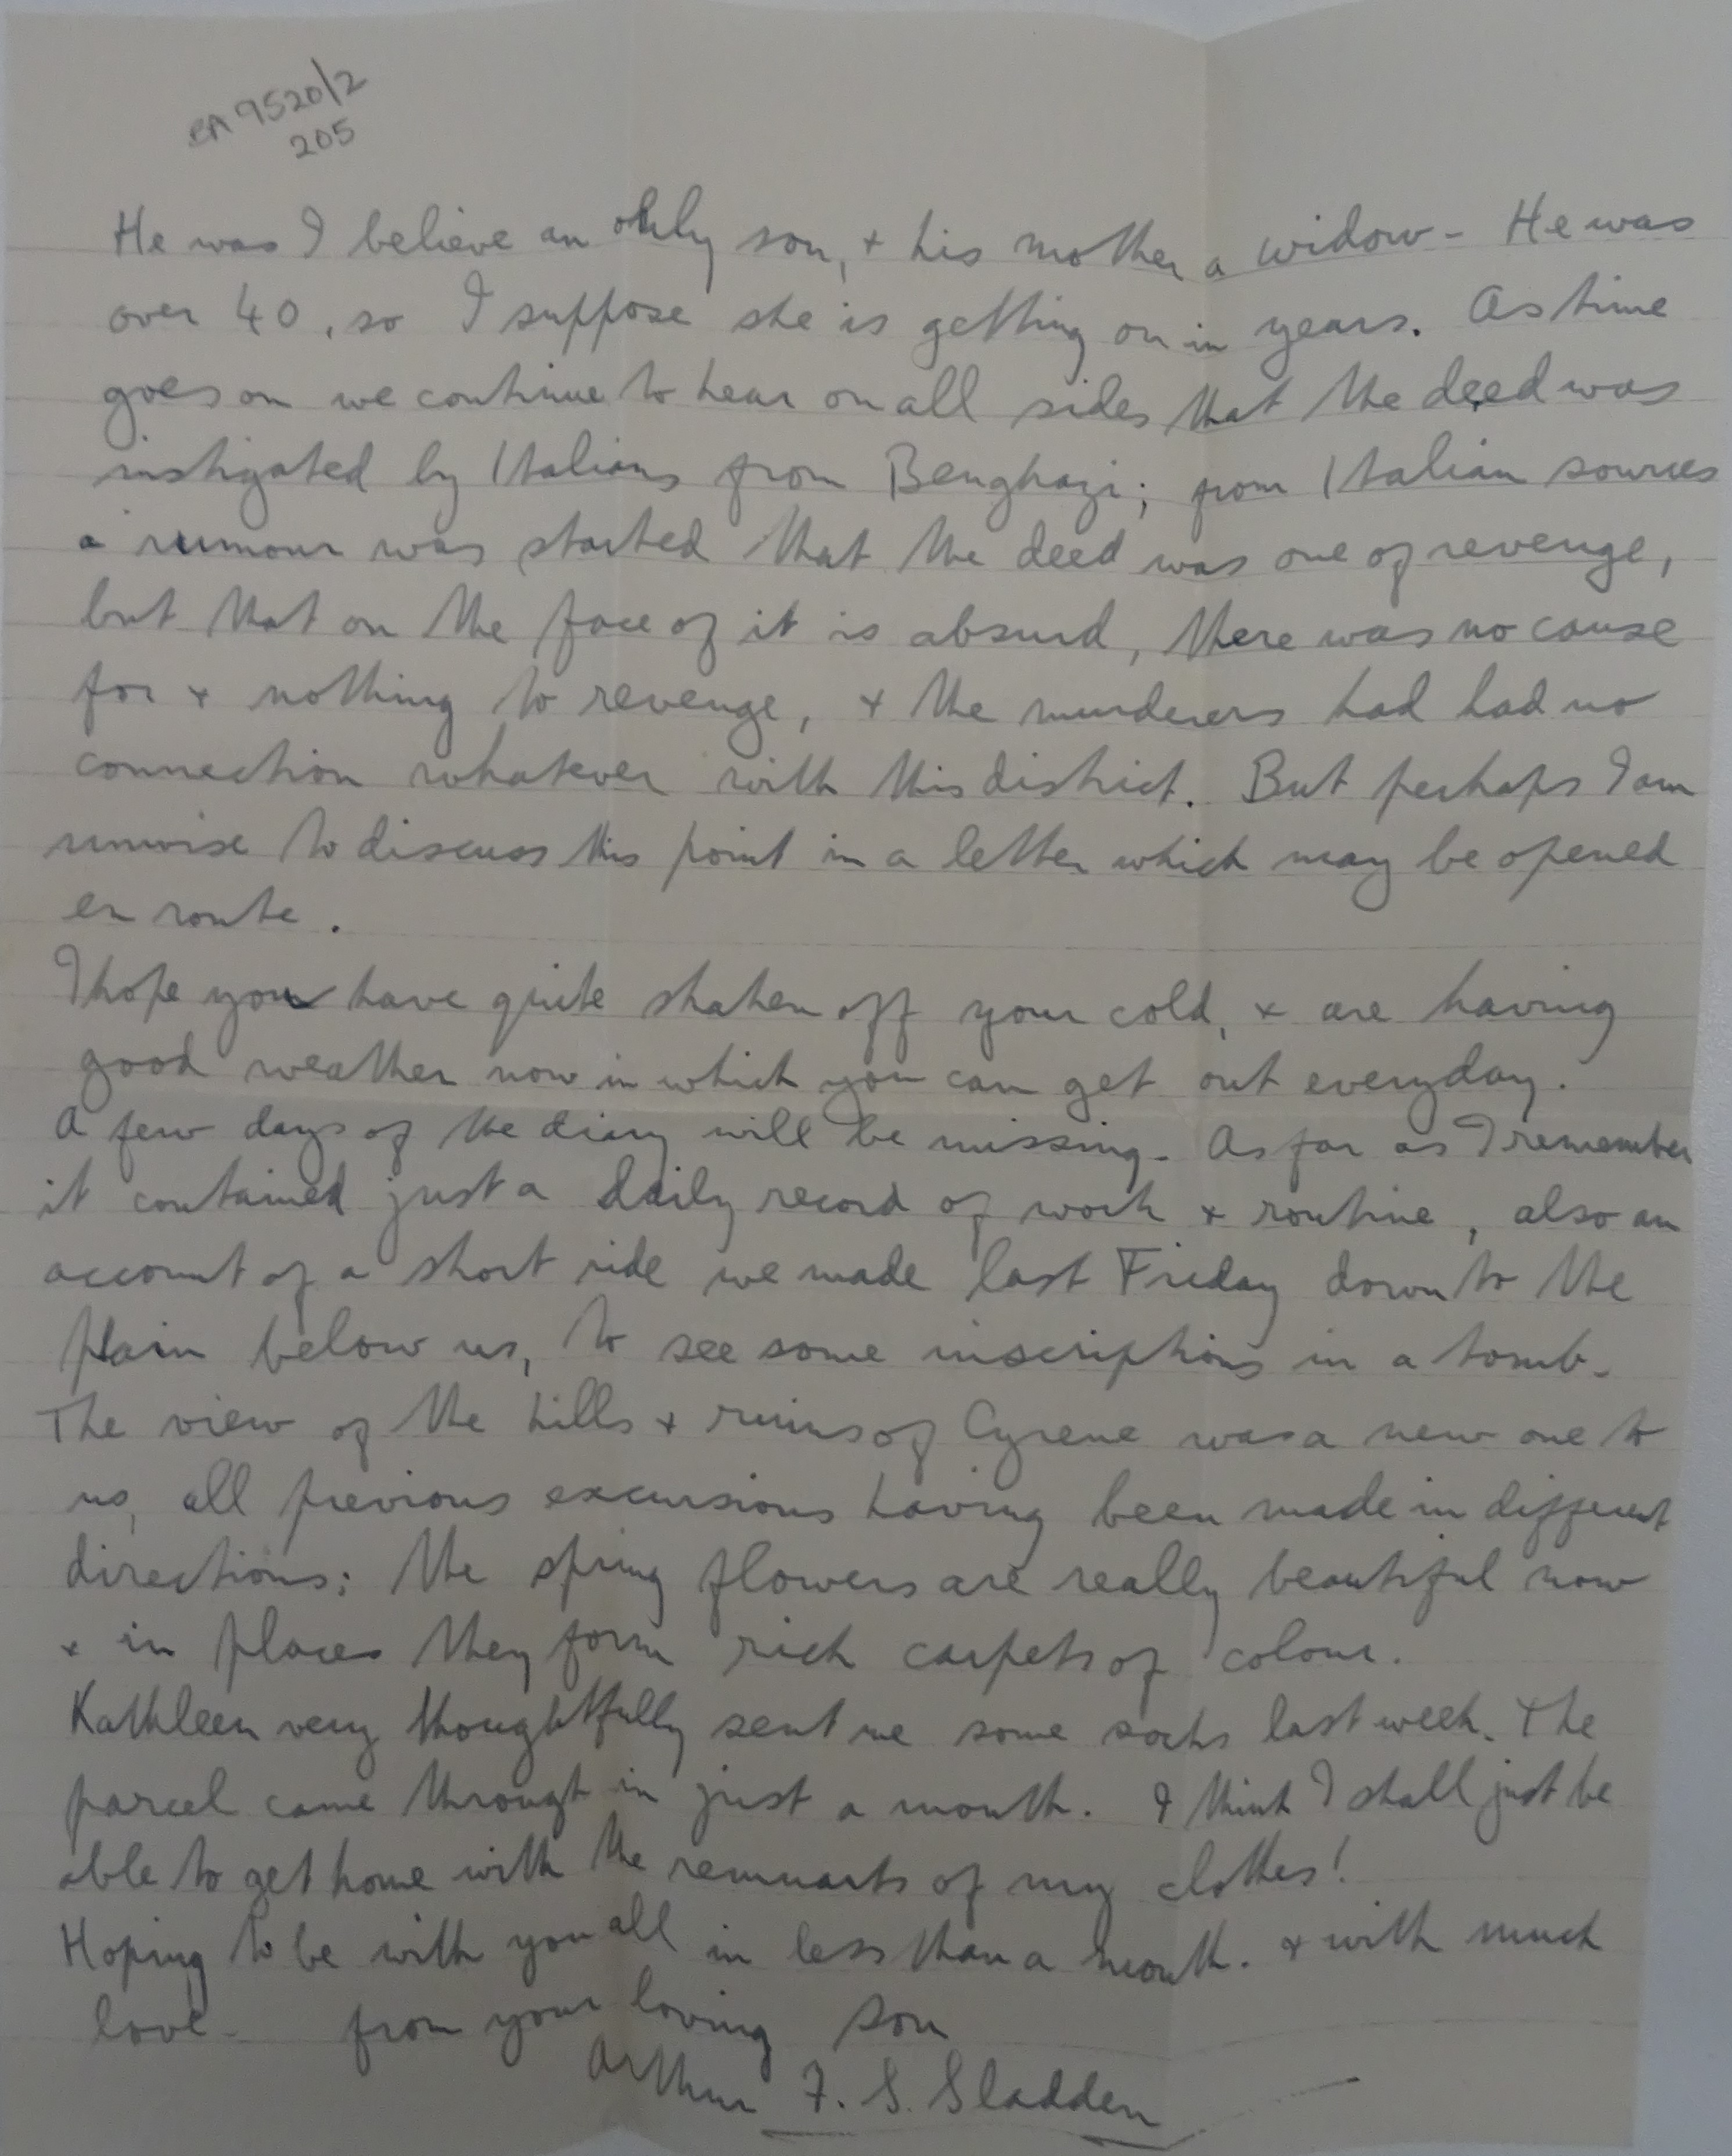 BA 9520/2
205
He was I believe an only son, + his mother a widow - He was
over 40, so I suppose she is getting on in years. As time
goes on we continue to hear on all sides that the deed was
instigated by Italians from Benghazi; from Italian sources
a rumour was started that the deed was one of revenge,
but that on the face of it is absurd, there was no cause
for + nothing to revenge, + the murderers had had no
connection whatever with this district. But perhaps I am
unwise to discuss this point in a letter which may be opened
en route.
I hope you have quite shaken off your cold, + are having
good weather now in which you can get out everyday.
A few days of the diary will be missing - As far as I remember
it contained just a daily record of work + routine, also an
account of a short ride we made last Friday down to the
plain below us, to see some inscriptions in a tomb.
The view of the hills + ruins of Cyrene was a new one to
us, all previous excursions having been made in different
directions; the spring flowers are really beautiful now
+ in places they form rich carpets of colour.
Kathleen very thoughtfully sent me some socks last week. The
parcel came through in just a month. I think I shall just be
able to get home with the remnants of my clothes!
Hoping to be with you all in less than a month. + with much
love - from your loving son
Arthur F. S. Sladden